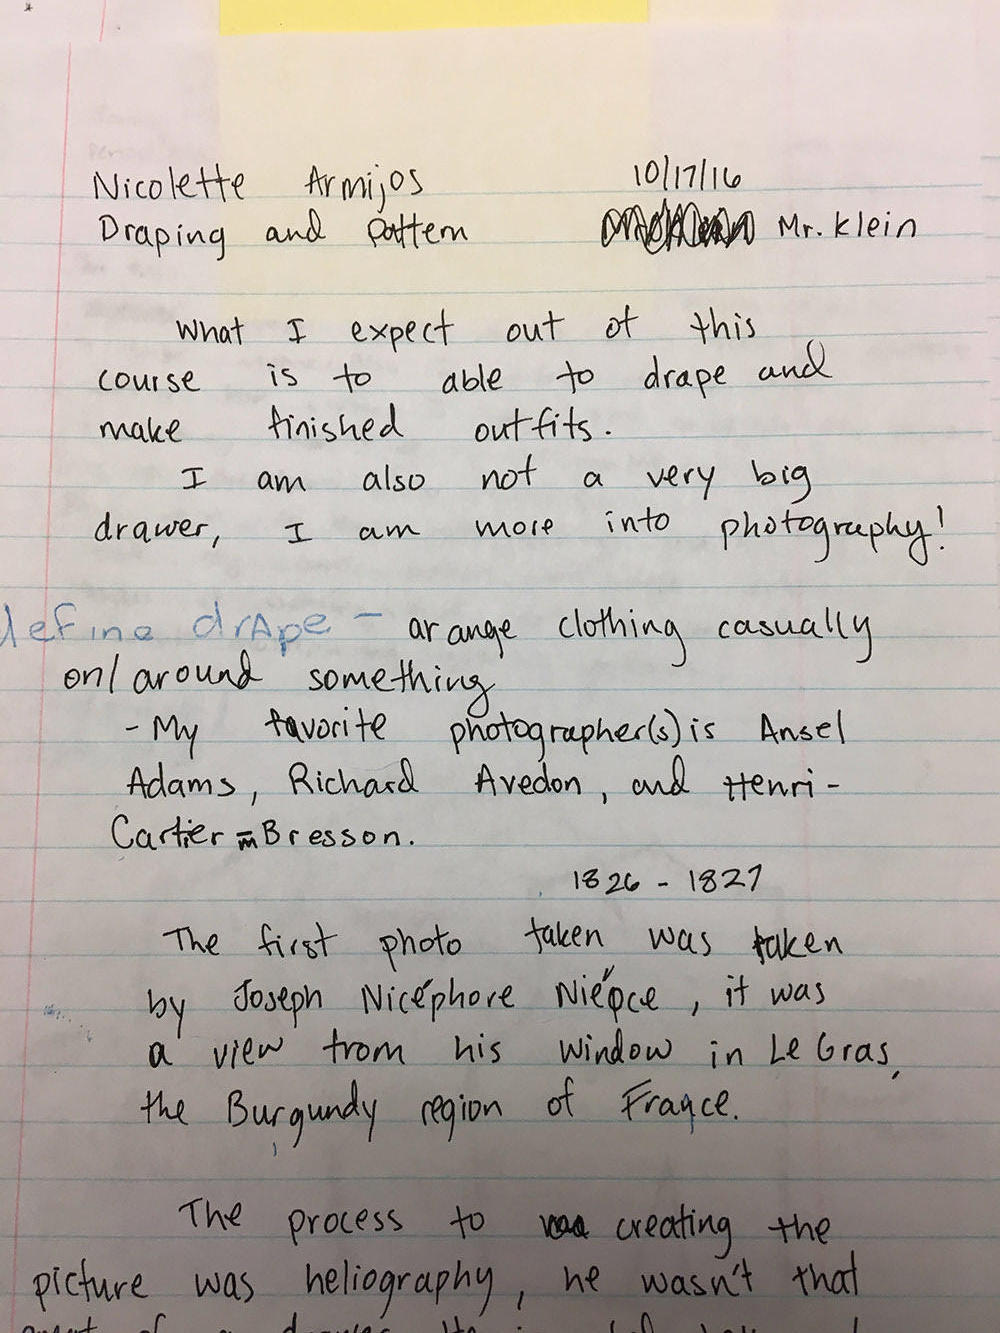 Nicolette Armijos 10/17/16
Draping and Pattern Mr. Klein
What I expect out of this
course is to able to drape and
make finished outfits.
I am also not a very big
drawer, I am more into photography!
define drape - arange clothing casually
on/around something
- My favorite photographer(s) is Ansel
Adams, Richard Avedon, and Henri-
Cartier-Bresson.
1826 - 1827
The first photo taken was taken
by Joseph Nicéphore Niépce, it was
a view from his window in Le Gras,
the Burgundy region of France.
The process to creating the
picture was heliography, he wasn't that